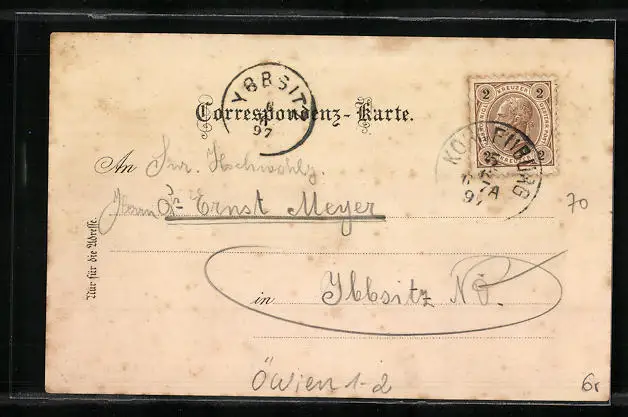 YBBSITZ
97
Correspondenz-Karte.
2 KREUZER 2
2 KREUZER 2
KORNEUBURG
97
An Snr. Hochwohlg.
Herrn Dr Ernst Meyer
70
Nur für die Adresse.
in Ybbsitz NÖ.
ÖWien 1-2
6r